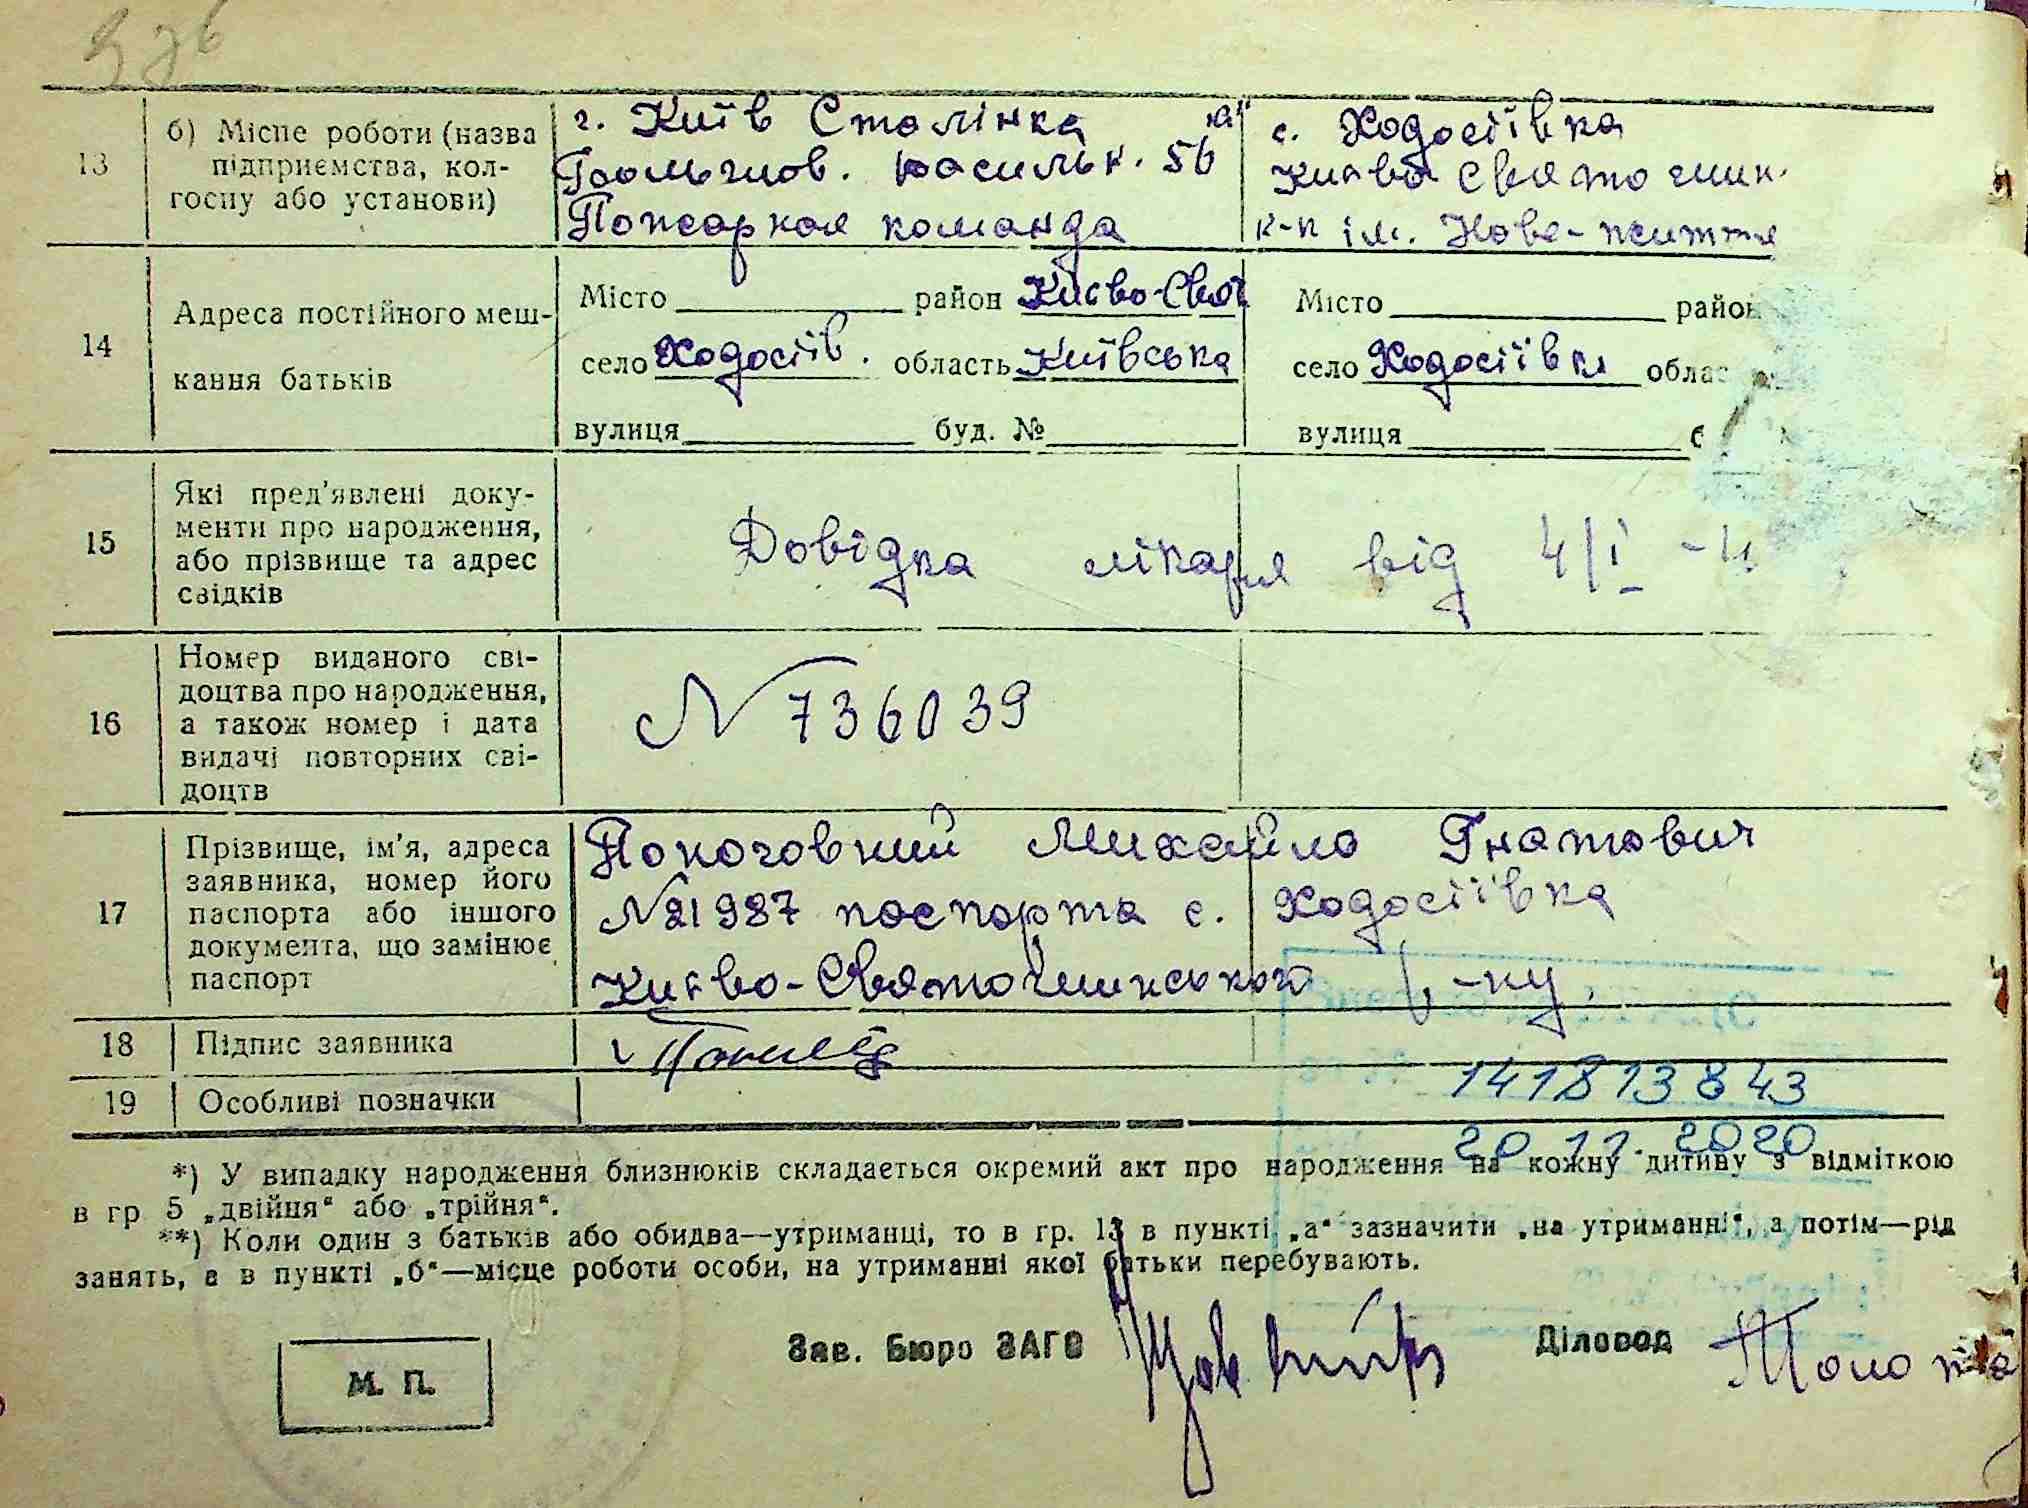 13
б) Місце роботи (назва
підприємства, кол-
госпу або установи)
г. Київ Сталінка
Васильк. 56
Пожарная команда
с. Ходосіївка
Києво Святошин.
к-п ім. Нове-життя
14
Адреса постійного меш-
кання батьків
Місто район Києво-Свят
село Ходосіїв. область Київська
вулиця буд. №
Місто район
село Ходосіївка облас
вулиця
15
Які пред'явлені доку-
менти про народження,
або прізвище та адрес
свідків
Довідка лікаря від 4/I
16
Номер виданого сві-
доцтва про народження,
а також номер і дата
видачі повторних сві-
доцтв
N 736039
17
Прізвище, ім'я, адреса
заявника, номер його
паспорта або іншого
документа, що замінює
паспорт
Михайло Гнатович
N 21987 паспорта с. Ходосіївка
Києво-Святошинського р-ну.
18
Підпис заявника
19
Особливі позначки
141813843
20 11 2020
*) У випадку народження близнюків складається окремий акт про народження на кожну дитину з відміткою
в гр 5 „двійня“ або „трійня“.
**) Коли один з батьків або обидва—утриманці, то в гр. 13 в пункті „а“ зазначити „на утриманні“, а потім—рід
занять, а в пункті „б“—місце роботи особи, на утриманні якої батьки перебувають.
Зав. Бюро ЗАГС
Діловод
М. П.